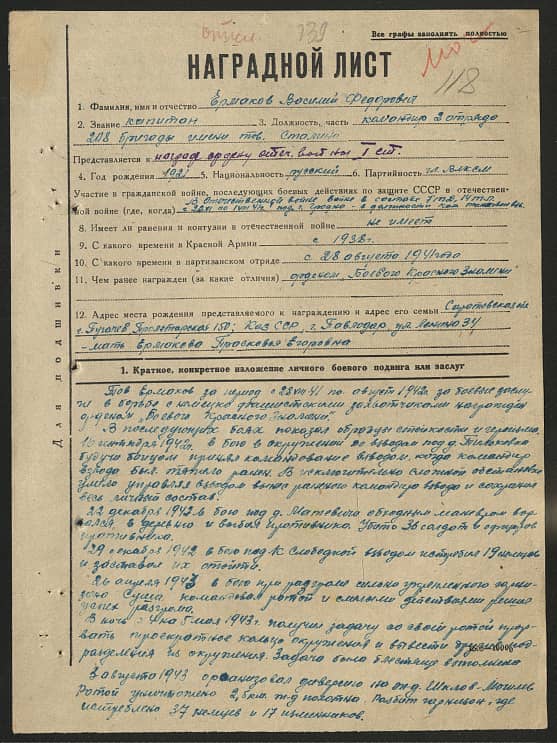 Все графы заполнять полностью
739
118
НАГРАДНОЙ ЛИСТ
1. Фамилия, имя и отчество Ермаков Василий Федорович
2. Звание капитан 3. Должность, часть командир 2 отряда
208 бригады имени тов. Сталина
Представляется к ордену отеч. войны I ст.
4. Год рождения 1921 5. Национальность русский 6. Партийность чл. ВЛКСМ
Участие в гражданской войне, последующих боевых действиях по защите СССР в отечествен-
ной войне (где, когда) В Отечественной войне в составе
8. Имеет ли ранения и контузии в отечественной войне не имеет
9. С какого времени в Красной Армии с 1938г.
10. С какого времени в партизанском отряде с 28 августа 1941 года
11. Чем ранее награжден (за какие отличия) орденом Боевого Красного Знамени
12. Адрес места рождения представляемого к награждению и адрес его семьи Саратовская
г. Пугачев Пролетарская 150; Каз ССР, г. Павлодар, ул. Ленина 34
-мать Ермакова Прасковья Егоровна
Для подшивки
1. Краткое, конкретное изложение личного боевого подвига или заслуг
Тов Ермаков за период с 28 VIII 41 по август 1942г. за боевые заслу-
ги в борьбе с немецко фашистскими захватчиками награжден
орденом „Боевого Красного Знамени"
В последующих боях показал образцы стойкости и героизма.
сентября 1942г. в бою в окружении со взводом под д.
будучи бойцом принял командование взводом, когда командир
взвода был тяжело ранен. В исключительно сложной обстановке
умело управляя взводом вынес раненого командира взвода и сохранил
весь личный состав.
22 декабря 1942 в бою под д. обходным маневром вор-
вался в деревню и выбил противника. Убито 36 солдат и офицеров
противника.
29 декабря 1942 в бою под К. Слободкой взводом истребил 19 немцев
и заставил их отойти.
26 апреля 1943 в бою при разгроме сильно укрепленного гарни-
зона Суша командовал ротой и смелыми действиями решил
успех разгрома.
В ночь с 4 на 5 мая 1943г. получил задачу со своей ротой прор-
вать троекратное кольцо окружения и вывести
из окружения. Задача была блестяще выполнена
В августа 1943 организовал диверсию на ж-д. Шклов-Могилев
Ротой уничтожено 2,5км. ж-д полотна. Разбит гарнизон где
истреблено 37 немцев и 17 изменников.